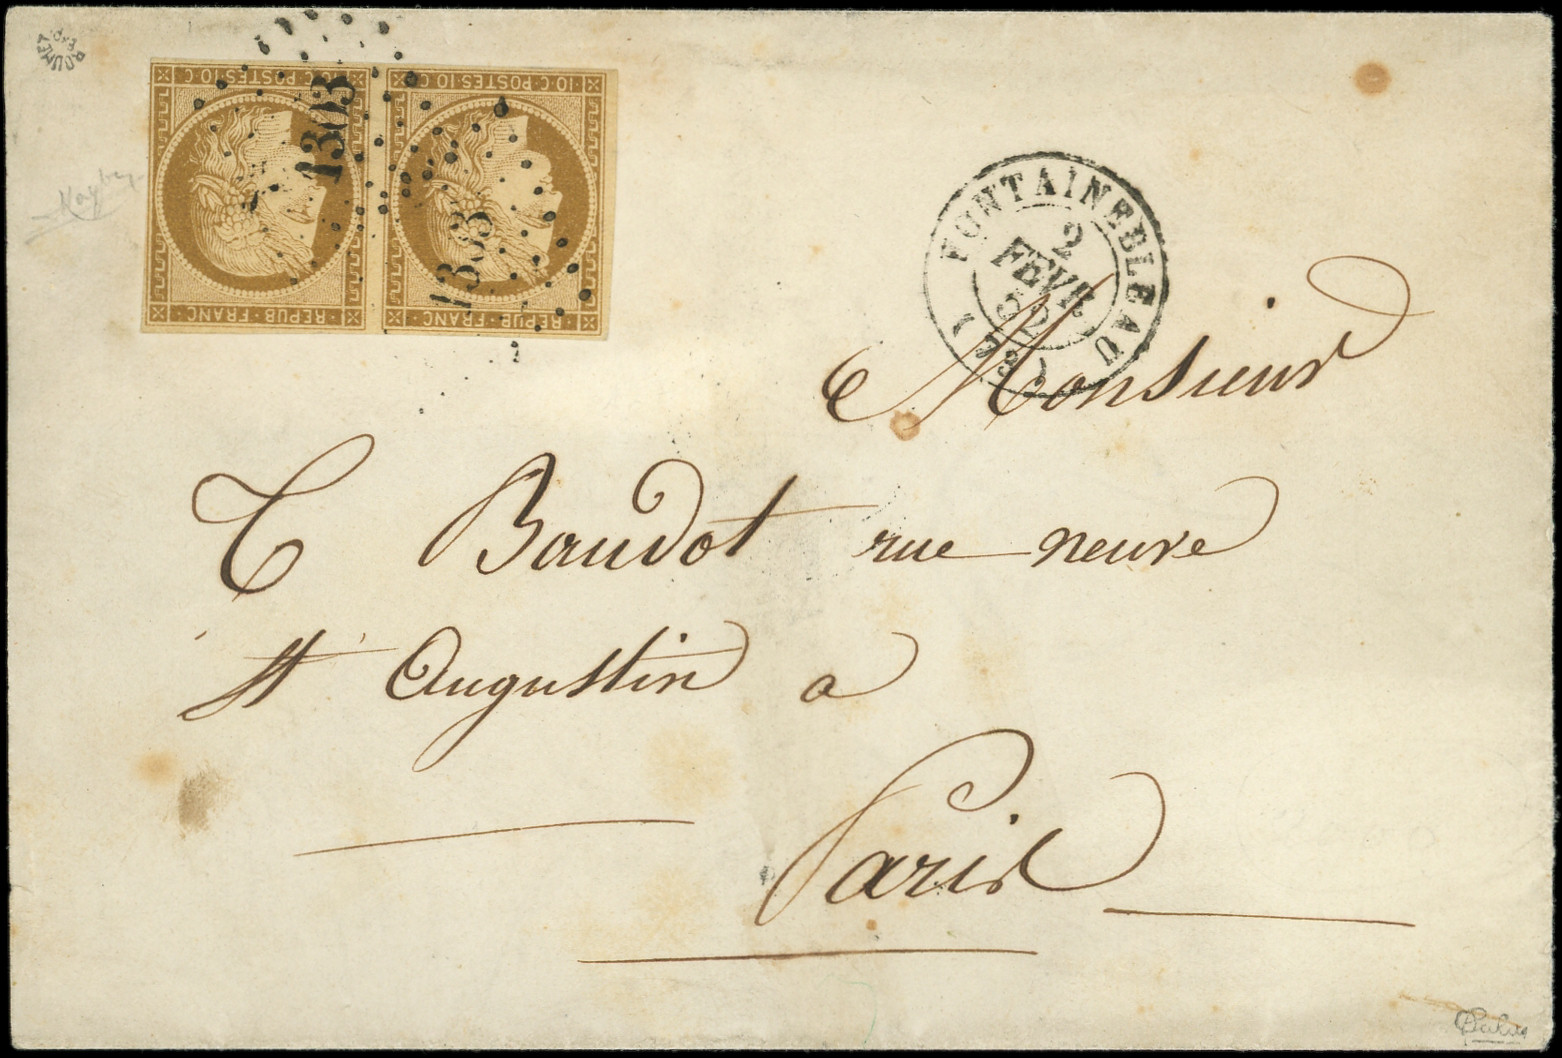 ROUMET
EXP.
10 C · POSTES · 10 C
10 C · POSTES · 10 C
REPUB · FRANC
REPUB · FRANC
1303
1303
FONTAINEBLEAU
2
FEVR
52
(73)
Monsieur
C Baudot rue neuve
St Augustin a
Paris